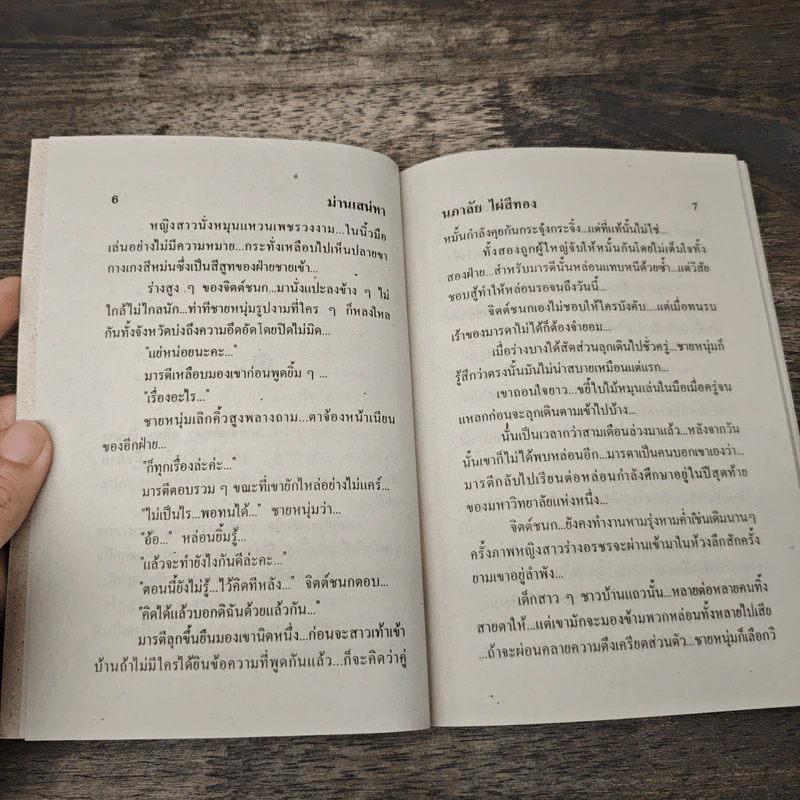 6
ม่านเสน่หา
หญิงสาวนั่งหมุนแหวนเพชรวงงาม...ในนิ้วมือ
เล่นอย่างไม่มีความหมาย...กระทั่งเหลือบไปเห็นปลายขา
กางเกงสีหม่นซึ่งเป็นสีสูทของฝ่ายชายเข้า...
ร่างสูง ๆ ของจิตต์ชนก...มานั่งแปะลงข้าง ๆ ไม่
ใกล้ไม่ไกลนัก...ท่าทีชายหนุ่มรูปงามที่ใคร ๆ ก็หลงใหล
กันทั้งจังหวัดบ่งถึงความอึดอัดโดยปิดไม่มิด...
"แย่หน่อยนะคะ..."
มารตีเหลือบมองเขาก่อนพูดยิ้ม ๆ ...
"เรื่องอะไร..."
ชายหนุ่มเลิกคิ้วสูงพลางถาม...ตาจ้องหน้าเนียน
ของอีกฝ่าย...
"ก็ทุกเรื่องล่ะค่ะ..."
มารตีตอบรวม ๆ ขณะที่เขายักไหล่อย่างไม่แคร์...
"ไม่เป็นไร...พอทนได้..." ชายหนุ่มว่า...
"อ้อ..." หล่อนยิ้มรู้...
"แล้วจะทำยังไงกันดีล่ะคะ..."
"ตอนนี้ยังไม่รู้...ไว้คิดทีหลัง..." จิตต์ชนกตอบ...
"คิดได้แล้วบอกดิฉันด้วยแล้วกัน..."
มารตีลุกขึ้นยืนมองเขานิดหนึ่ง...ก่อนจะสาวเท้าเข้า
บ้านถ้าไม่มีใครได้ยินข้อความที่พูดกันแล้ว...ก็จะคิดว่าคู่
นภาลัย ไผ่สีทอง
7
หมั้นกำลังคุยกันกระจุ๋งกระจิ๋ง...แต่ที่แท้นั้นไม่ใช่...
ทั้งสองถูกผู้ใหญ่จับให้หมั้นกันโดยไม่เต็มใจทั้ง
สองฝ่าย...สำหรับมารตีนั้นหล่อนแทบหนีด้วยซ้ำ...แต่วิสัย
ชอบสู้ทำให้หล่อนรอจนถึงวันนี้...
จิตต์ชนกเองไม่ชอบให้ใครบังคับ....แต่เมื่อทนรบ
เร้าของมารดาไม่ได้ก็ต้องจำยอม...
เมื่อร่างบางได้สัดส่วนลุกเดินไปชั่วครู่...ชายหนุ่มก็
รู้สึกว่าตรงนั้นมันไม่น่าสบายเหมือนแต่แรก...
เขาถอนใจยาว...ขยี้ใบไม้หมุนเล่นในมือเมื่อครู่จน
แหลกก่อนจะลุกเดินตามเข้าไปบ้าง...
นั้นเป็นเวลากว่าสามเดือนล่วงมาแล้ว...หลังจากวัน
นั้นเขาก็ไม่ได้พบหล่อนอีก...มารดาเป็นคนบอกเขาเองว่า...
มารตีกลับไปเรียนต่อหล่อนกำลังศึกษาอยู่ในปีสุดท้าย
ของมหาวิทยาลัยแห่งหนึ่ง...
จิตต์ชนก...ยังคงทำงานหามรุ่งหามค่ำเช่นเดิมนานๆ
ครั้งภาพหญิงสาวร่างอรชรจะผ่านเข้ามาในห้วงลึกสักครั้ง
ยามเขาอยู่ลำพัง...
เด็กสาว ๆ ชาวบ้านแถวนั้น...หลายต่อหลายคนทิ้ง
สายตาให้...แต่เขามักจะมองข้ามพวกหล่อนทั้งหลายไปเสีย
...ถ้าจะผ่อนคลายความตึงเครียดส่วนตัว...ชายหนุ่มก็เลือกวิ